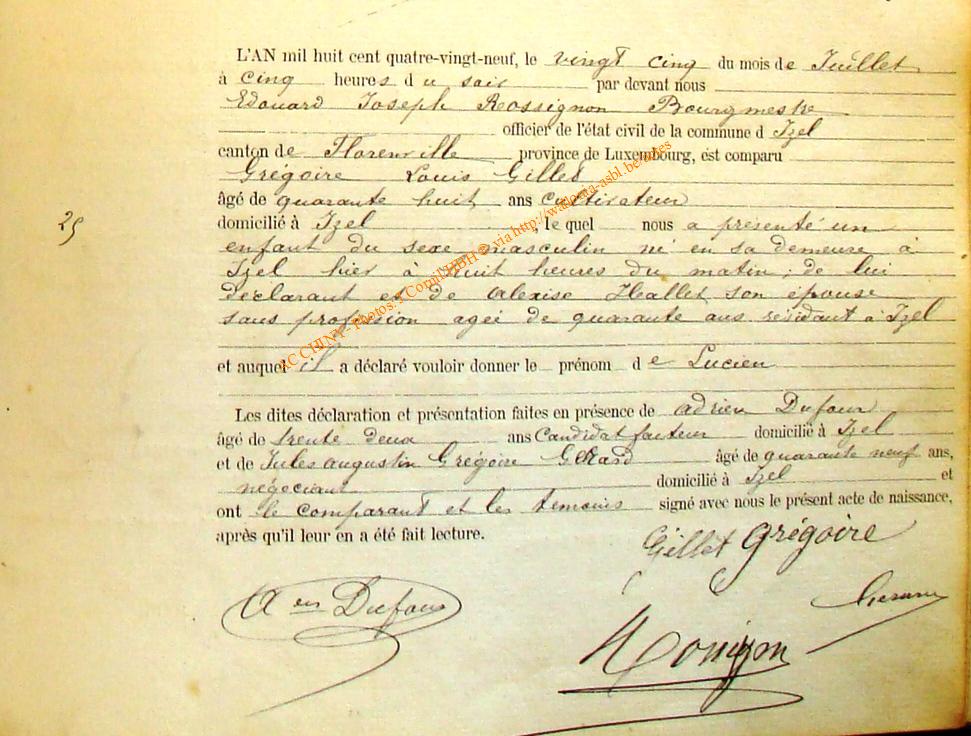 L'AN mil huit cent quatre-vingt-neuf, le vingt cinq du mois de Juillet
à cinq heures du soir par devant nous
Edouard Joseph Rossignon Bourgmestre
officier de l'état civil de la commune d Izel
canton de Florenville province de Luxembourg, est comparu
Grégoire Louis Gillet
âgé de quarante huit ans cultivateur
25
domicilié à Izel , le quel nous a présenté un
enfant du sexe masculin né en sa demeure à
Izel hier à huit heures du matin ; de lui
déclarant et de Alexise Hallet son épouse
sans profession agée de quarante ans résidant à Izel
et auquel il a déclaré vouloir donner le prénom de Lucien
Les dites déclaration et présentation faites en présence de Adrien Dufour
âgé de trente deux ans Candidat facteur domicilié à Izel
et de Jules Augustin Grégoire Gérard âgé de quarante neuf ans,
négociant domicilié à Izel et
ont le comparant et les temoins signé avec nous le présent acte de naissance,
après qu'il leur en a été fait lecture.
Gillet Grégoire
A en Dufour
AC CHINY - Photos: J.Cornil HBH © via http://walponta-asbl.be/